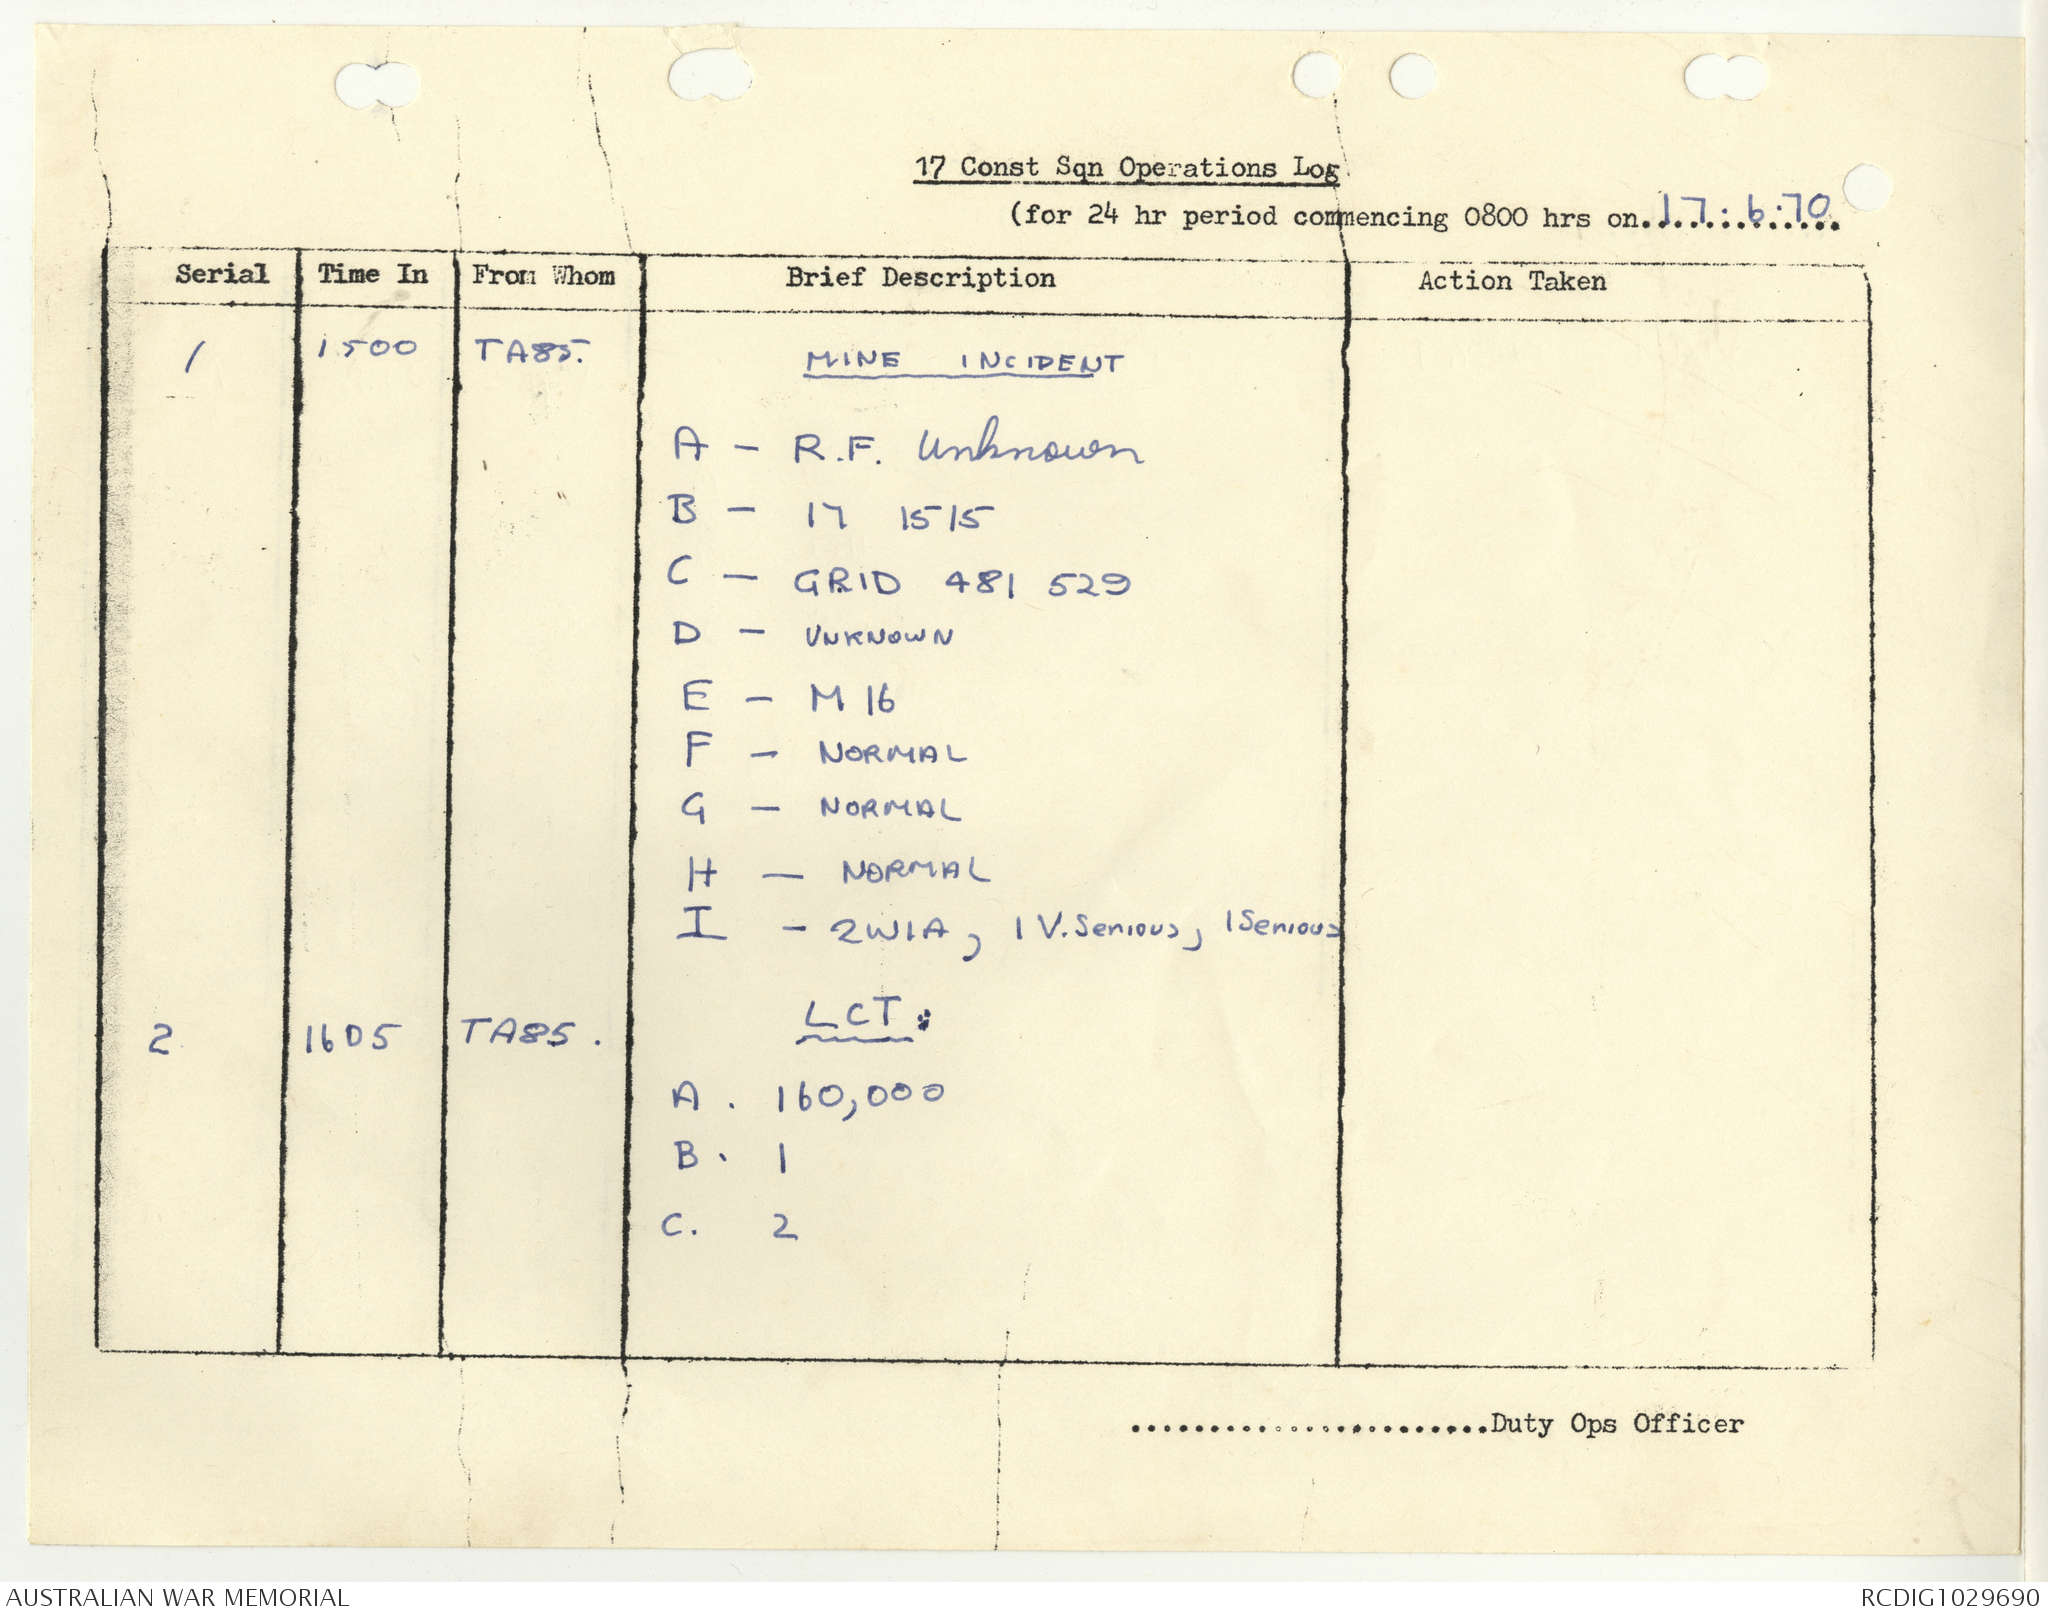 17 Const Sqn Operations Log
(for 24 hr period commencing 0800 hrs on 17.6.70.
Serial Time In From Whom Brief Description Action Taken
1 1500 TA85. MINE INCIDENT
A - R.F. Unknown
B - 17 1515
C - GRID 481 529
D - UNKNOWN
E - M16
F - NORMAL
G - NORMAL
H - NORMAL
I - 2WIA, 1 V.Serious, 1 Serious
2 1605 TA85. LCT:
A. 160,000
B. 1
C. 2
........................Duty Ops Officer
AUSTRALIAN WAR MEMORIAL RCDIG1029690